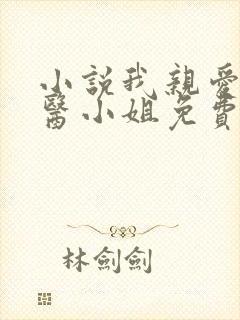 小說我親愛
醫小姐免費
林劍劍